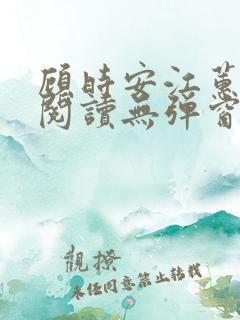 顾時安江蕙
閱讀無彈窗
觀撩
未經同意禁止轉載